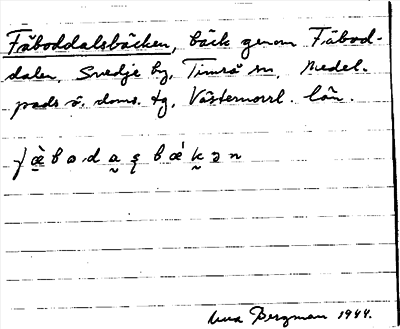 Fäboddalsbäcken, bäck genom Fäbod-
dalen, Svedje by, Timrå sn, Medel-
pads ö. doms. tg, Västernorrl. län.
Bergman 1944.